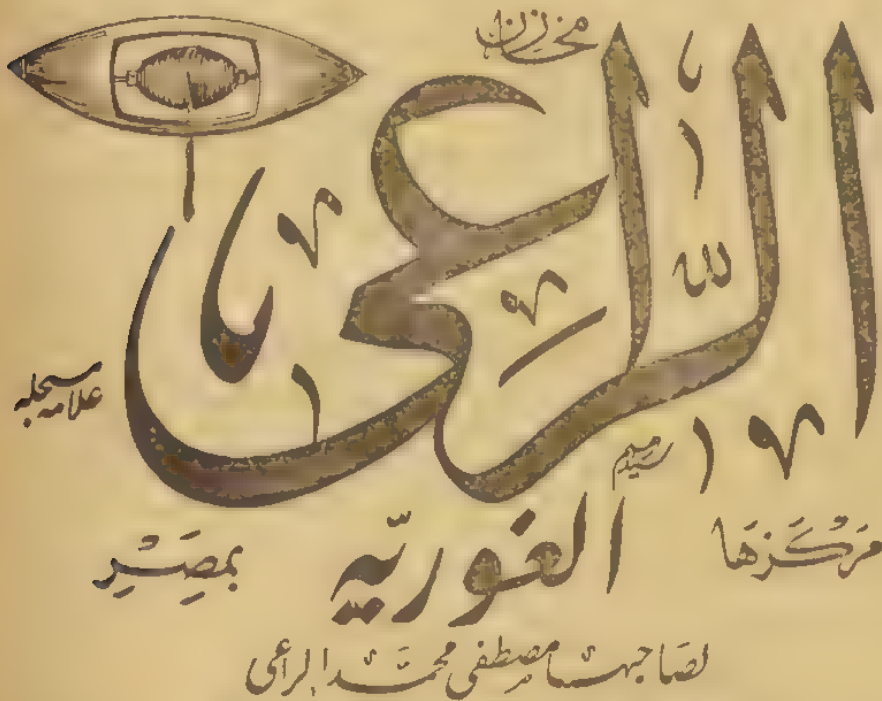 مخزن
الراعى
علامه مسجله
مركزها الغوريّه بمصر
لصاحبها مصطفى محمد الراعى